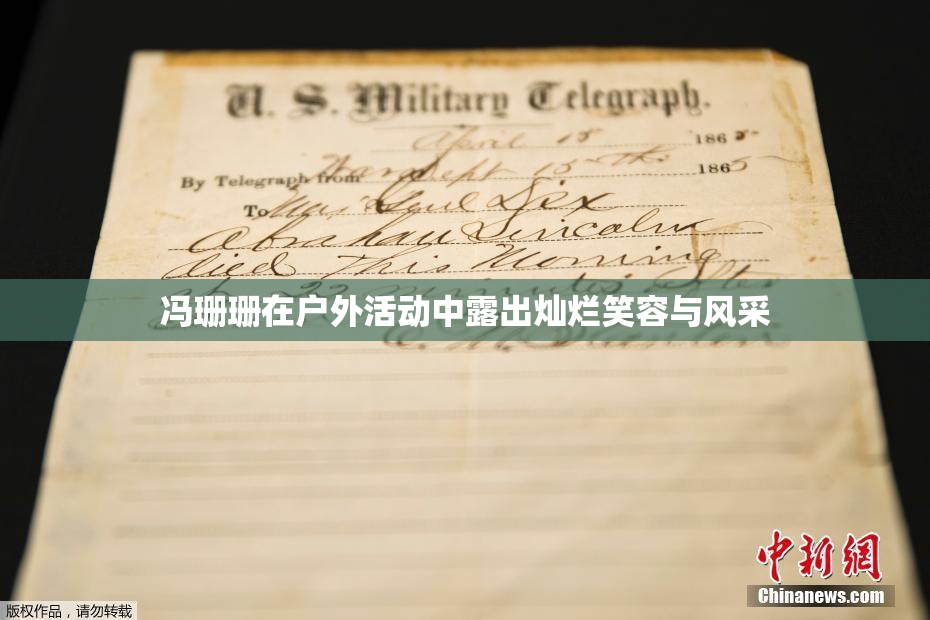 U. S. Military Telegraph.
April 15 1865
By Telegraph from War Dept 15th 1865
To Maj Genl Dix
Abraham Lincoln
died This Morning
at 22 minutes after
冯珊珊在户外活动中露出灿烂笑容与风采
E. M. Stanton
中新网
Chinanews.com
版权作品，请勿转载